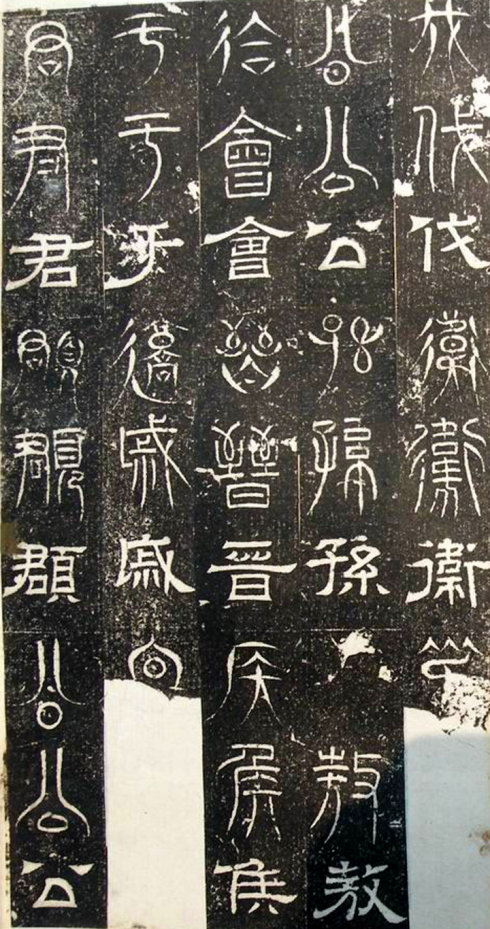 伐伐伐衛衛衛
公公公孫孫孫敖敖
會會會晉晉晉侯侯侯
于于于戚戚戚
君君君頵頵頵公公公